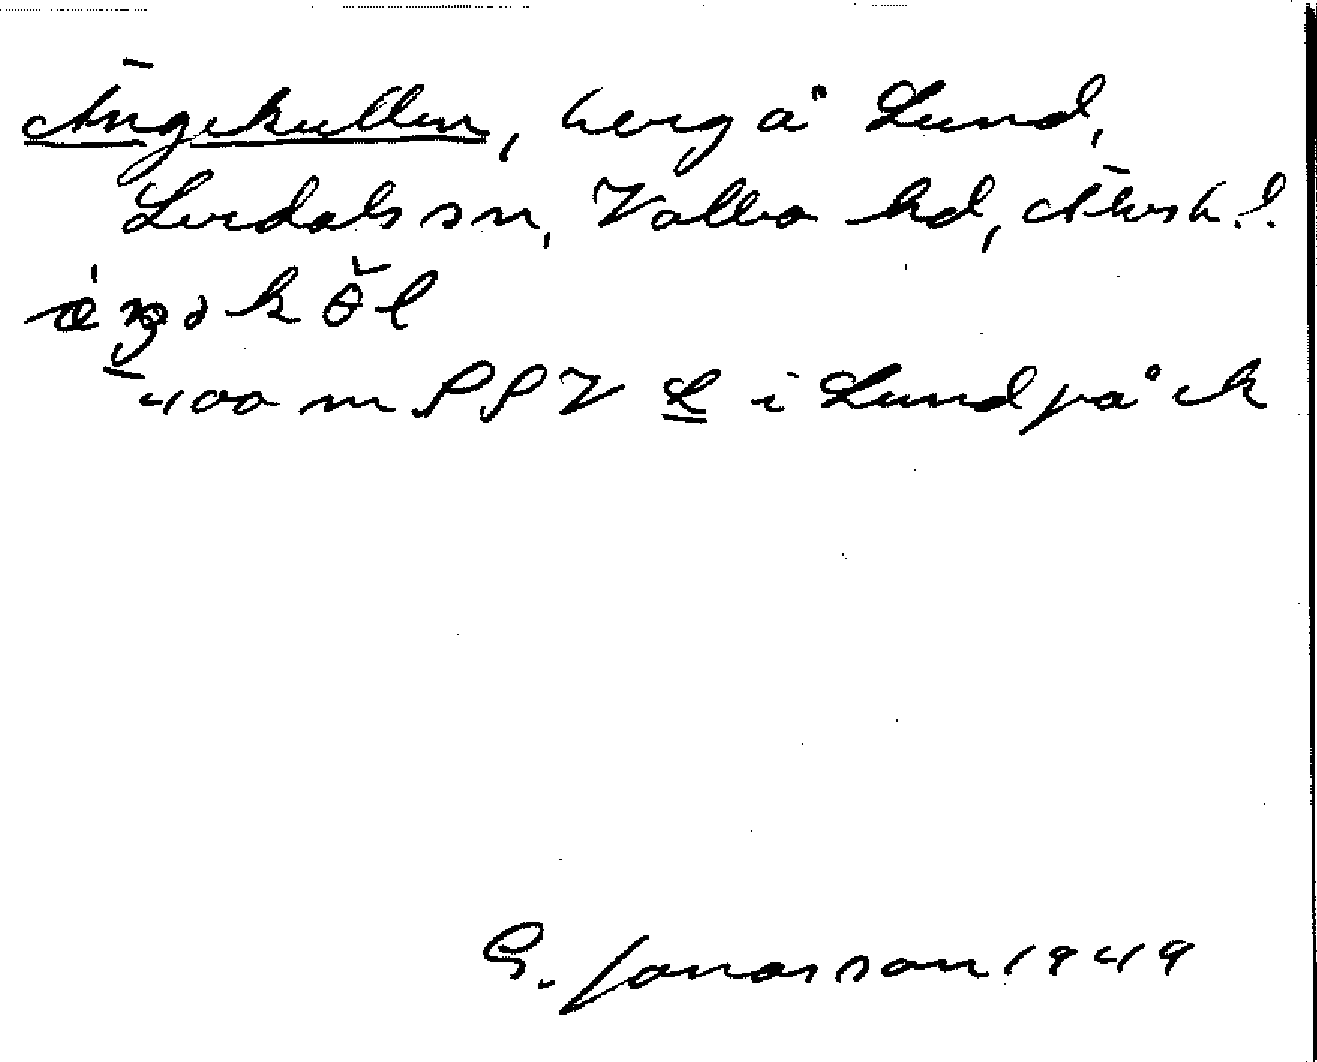 Ängekullen, berg å Lund,
Lerdals sn, Valbo hd, Älvsb. l.
400 m SSV L i Lund på ek
G. Jonasson 1949